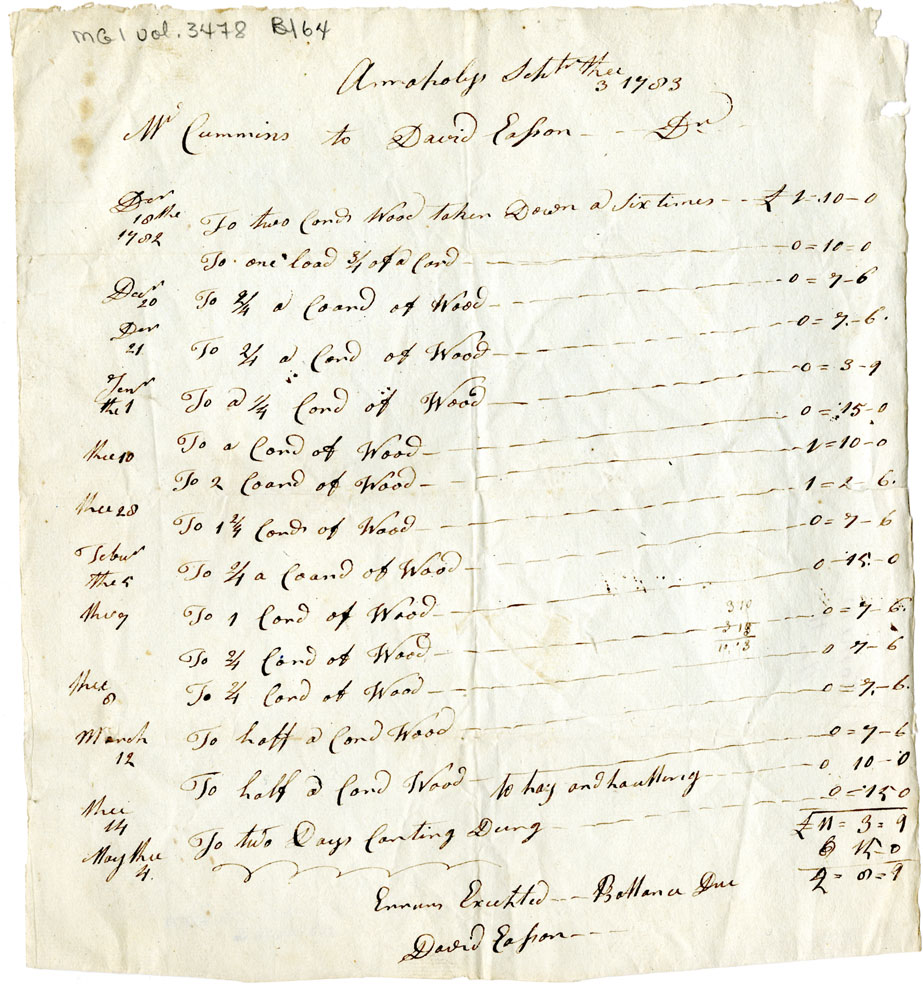 MG 1 vol. 3478 B164
Annapolys Septr thee 3 1783
Mr Cummins to David Easson - - - Dr
Decr 18 the 1782 To two Cords Wood taken Down a Six times - - £ 1-10-0
To one load 3/4 of a Cord 0=10=0
Decr 20 To 2/4 a Coard of Wood 0=7-6
Decr 21 To 2/4 a Cord of Wood 0=7-6
Jenr the 1 To a 1/4 Cord of Wood 0=3-9
thee 10 To a Cord of Wood 0=15-0
To 2 Coard of Wood 1=10-0
thee 28 To 1 2/4 Cords of Wood 1=2-6
Febur the 5 To 2/4 a Coard of Wood 0=7-6
the 7 To 1 Cord of Wood 0-15-0
To 2/4 Cord of Wood 0=7-6
thee 8 To 2/4 Cord of Wood 0 7-6
March 12 To haff a Cord Wood 0=7-6
To half a Cord Wood 0=7-6
to hay and haulling 0 10-0
thee 14
May thee 4 To two Days Carting Dung 0=15 0
£ 11=3=9
6 15-0
4=8=9
Errurs Excehted - - Ballance Due
David Easson